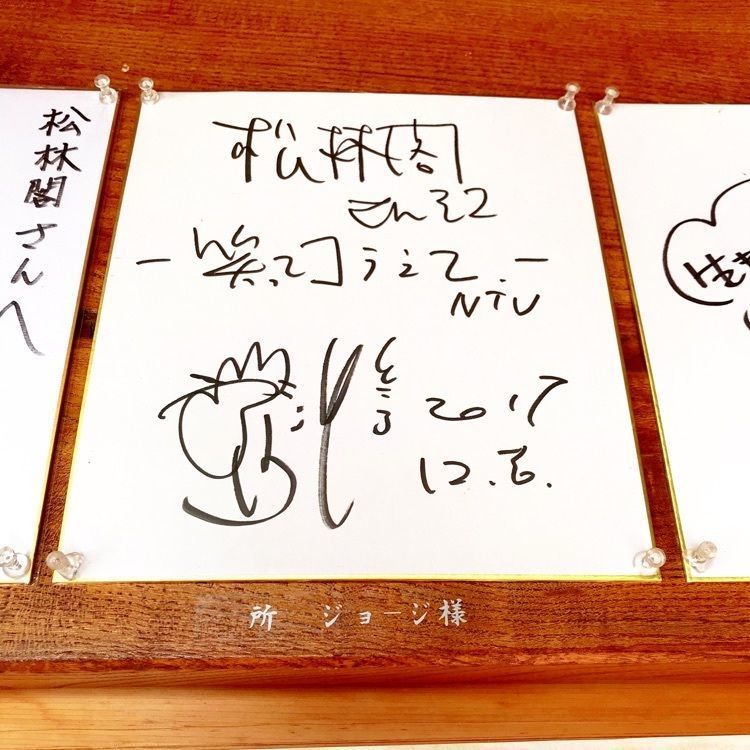 松林閣さんへ
松林閣
さんえ
－笑ってコラえて.－
NTV
ところ
2017
12.6.
生き
所 ジョージ様